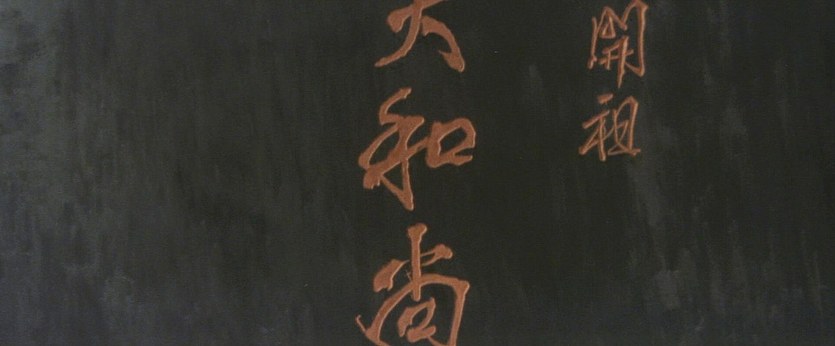 開祖
大和尚